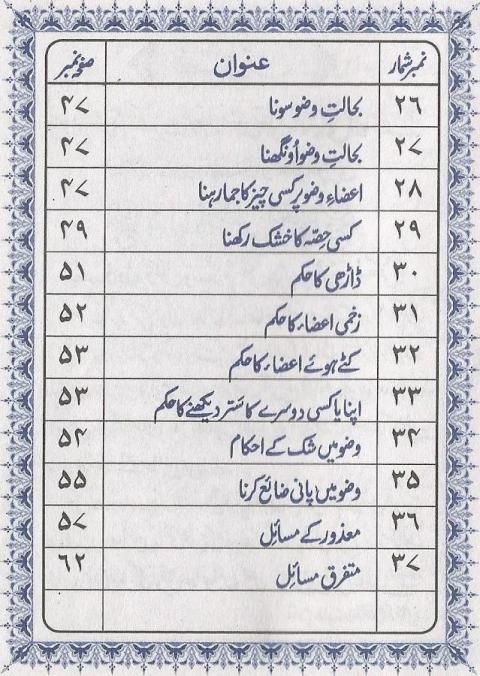 نمبر شمار عنوان صفحہ نمبر
۲۶ بحالتِ وضو سونا ۴۷
۲۷ بحالتِ وضو اُونگھنا ۴۷
۲۸ اعضاءِ وضو پر کسی چیز کا جما رہنا ۴۷
۲۹ کسی حِصّہ کا خشک رکھنا ۴۹
۳۰ ڈاڑھی کا حکم ۵۱
۳۱ زخمی اعضاء کا حکم ۵۲
۳۲ کٹے ہوئے اعضاء کا حکم ۵۳
۳۳ اپنا یا کسی دوسرے کا ستر دیکھنے کا حکم ۵۳
۳۴ وضو میں شک کے احکام ۵۴
۳۵ وضو میں پانی ضائع کرنا ۵۵
۳۶ معذور کے مسائل ۵۷
۳۷ متفرق مسائل ۶۲